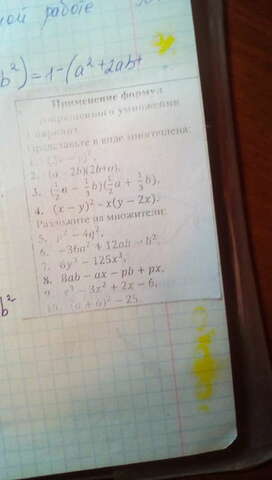 ной работе
b²) = 1-(a²+2ab+
Применение формул
сокращенного умножения
1 вариант
Представьте в виде многочлена:
1.
2. (a − 2b)(2b+a),
3. (½a − ⅓b)(½a + ⅓b),
4. (x − y)² − x(y − 2x).
Разложите на множители:
5. p² − 4q²,
6. −36a² + 12ab − b²
7. − 125x³,
8. 8ab − ax − pb + px,
9. − 3x² + 2x − 6,
10. (a + 6)² − 25
b²